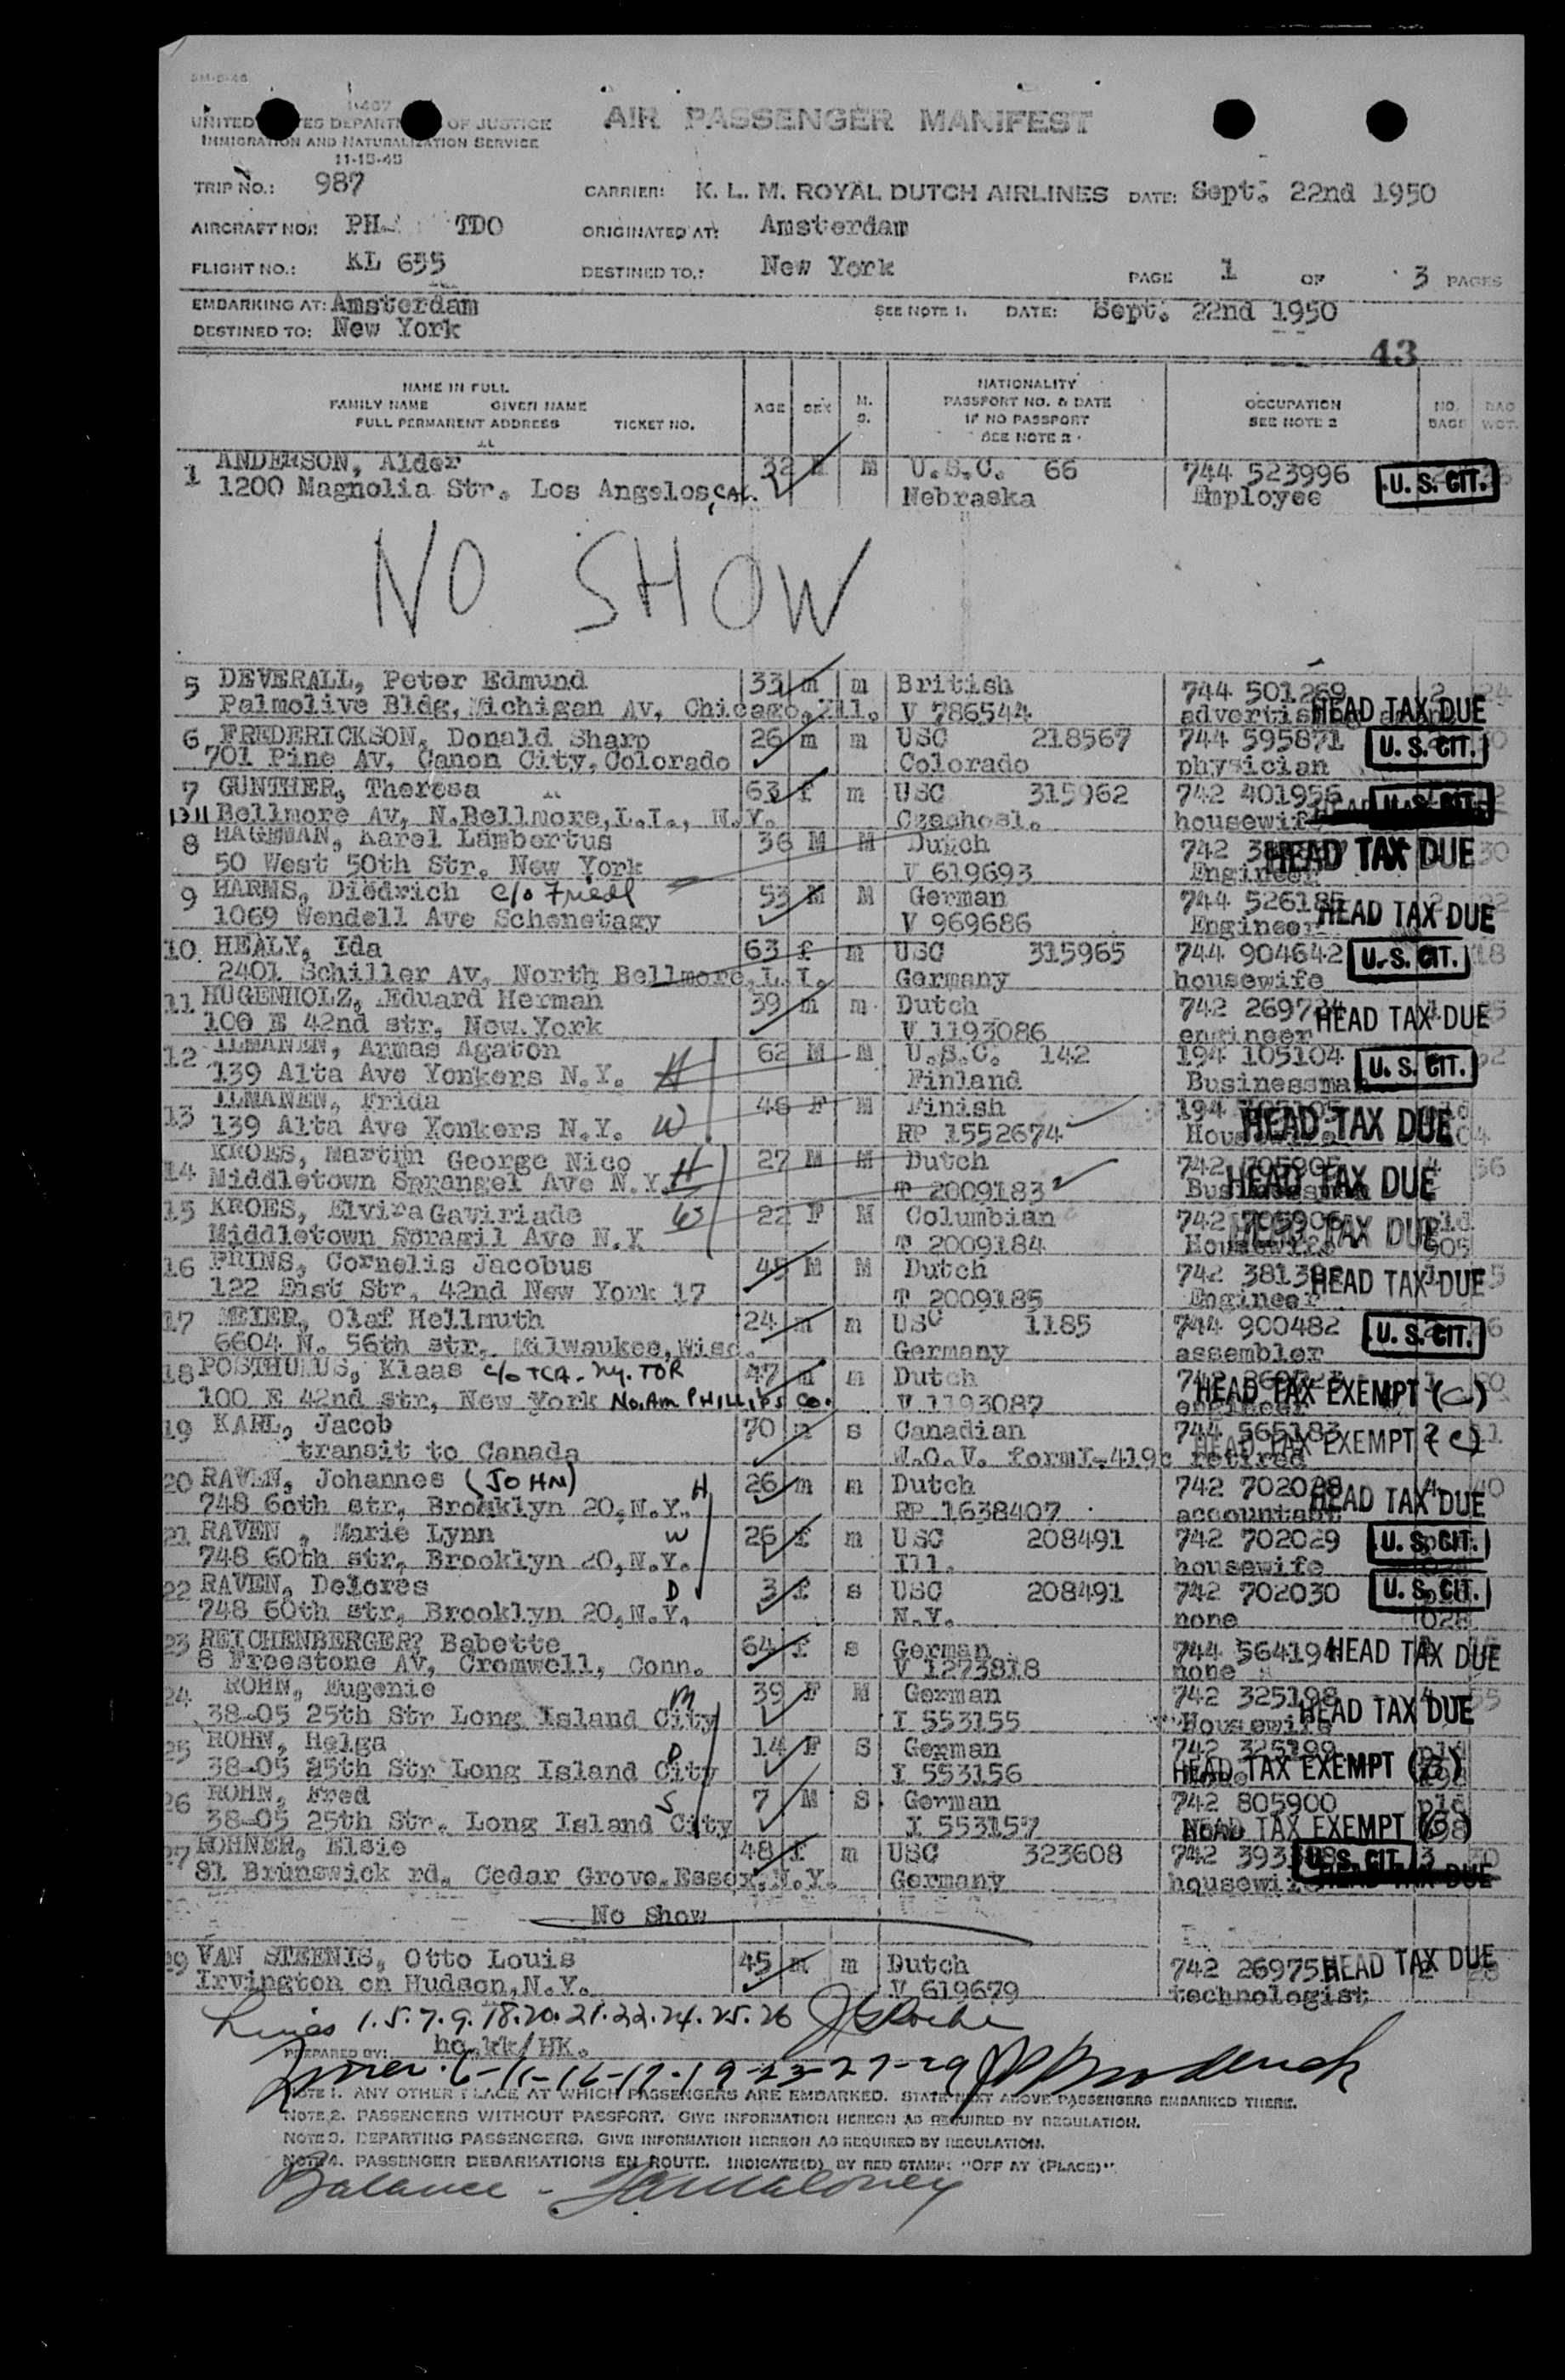 AIR PASSENGER MANIFEST
UNITED STATES DEPARTMENT OF JUSTICE
IMMIGRATION AND NATURALIZATION SERVICE
11-15-45
TRIP NO.: 987 CARRIER: K. L. M. ROYAL DUTCH AIRLINES DATE: Sept. 22nd 1950
AIRCRAFT NO.: PH- TDO ORIGINATED AT: Amsterdam
FLIGHT NO.: KL 655 DESTINED TO.: New York PAGE 1 OF 3 PAGES
EMBARKING AT: Amsterdam SEE NOTE 1. DATE: Sept. 22nd 1950
DESTINED TO: New York
43
NAME IN FULL
FAMILY NAME GIVEN NAME
FULL PERMANENT ADDRESS TICKET NO.
AGE SEX M. S.
NATIONALITY
PASSPORT NO. & DATE
IF NO PASSPORT
SEE NOTE 2
OCCUPATION
SEE NOTE 2
NO. BAGE BAG WGT.
1 ANDERSON, Alder 32 M M U.S.C. 66 744 523996 U. S. CIT.
1200 Magnolia Str. Los Angelos, CAL. Nebraska Employee
NO SHOW
5 DEVERALL, Peter Edmund 33 m m British 744 501269 2 24
Palmolive Bldg, Michigan Av, Chicago, Ill. V 786544 HEAD TAX DUE
6 FREDERICKSON, Donald Sharp 26 m m USC 218567 744 595871 U. S. CIT.
701 Pine Av, Canon City, Colorado Colorado physician
7 GUNTHER, Theresa 63 f m USC 315962 742 401956 U. S. CIT.
1311 Bellmore Av, N.Bellmore, L.I., N.Y. Czechosl. housewife
8 HAGEMAN, Karel Lambertus 36 M M Dutch 742 HEAD TAX DUE 30
50 West 50th Str. New York V 619693 Engineer
9 HARMS, Diedrich c/o Friedl 53 M M German 744 526185 HEAD TAX DUE
1069 Wendell Ave Schenetagy V 969686 Engineer
10 HEALY, Ida 63 f m USC 315965 744 904642 U. S. CIT. 18
2401 Schiller Av, North Bellmore, L.I. Germany housewife
11 HUGENHOLZ, Eduard Herman 39 m m Dutch 742 269724 HEAD TAX DUE
100 E 42nd str, New York V 1193086 engineer
12 ILMANEN, Armas Agaton 62 M M U.S.C. 142 194 105104 U. S. CIT.
139 Alta Ave Yonkers N.Y. H Finland Businessman
13 ILMANEN, Frida 48 F M Finish 194 HEAD TAX DUE
139 Alta Ave Yonkers N.Y. W RP 1552674
14 KROES, Martijn George Nico 27 M M Dutch 742 705905 4 36
Middletown Sprangel Ave N.Y. H T 2009183 HEAD TAX DUE
15 KROES, Elvira Gaviriade 22 F M Columbian 742 705906
Middletown Spragil Ave N.Y W T 2009184 Housewife TAX DUE
16 PRINS, Cornelis Jacobus 45 M M Dutch 742 HEAD TAX DUE
122 East Str. 42nd New York 17 T 2009185 Engineer
17 MEIER, Olaf Hellmuth 24 m m USC 1185 744 900482 U. S. CIT.
6604 N. 56th str. Milwaukee, Wisc. Germany assembler
18 POSTHUMUS, Klaas c/o TCA - Ny. TOR 47 m m Dutch 742 HEAD TAX EXEMPT (C)
100 E 42nd str, New York No. Am PHILLIPS Co. V 1193087 engineer
19 KARL, Jacob 70 m s Canadian 744 565183 HEAD TAX EXEMPT (C)
transit to Canada W.O.V. form I-419c retired
20 RAVEN, Johannes (JOHN) H 26 m m Dutch 742 702028 4 40
748 60th str, Brooklyn 20, N.Y. RP 1638407 accountant HEAD TAX DUE
21 RAVEN, Marie Lynn W 26 f m USC 208491 742 702029 U. S. CIT.
748 60th str, Brooklyn 20, N.Y. Ill. housewife
22 RAVEN, Delores D 3 f s USC 208491 742 702030 U. S. CIT.
748 60th str, Brooklyn 20, N.Y. N.Y. none 028
23 REICHENBERGER? Babette 64 f s German 744 564194 HEAD TAX DUE
8 Freestone Av, Cromwell, Conn. V 1273818 none
24 ROHN, Eugenie M 39 F M German 742 325198 HEAD TAX DUE
38-05 25th Str Long Island City I 553155 Housewife
25 ROHN, Helga D 14 F S German 742 325199 pld
38-05 25th Str Long Island City I 553156 HEAD TAX EXEMPT
26 ROHN, Fred S 7 M S German 742 805900 pld
38-05 25th Str. Long Island City I 553157 HEAD TAX EXEMPT
27 ROHNER, Elsie 48 f m USC 323608 742 U. S. CIT. 3 30
81 Brunswick rd. Cedar Grove. Essex, N.Y. Germany housewife HEAD TAX DUE
No show
29 VAN STEENIS, Otto Louis 45 m m Dutch 742 HEAD TAX DUE
Irvington on Hudson, N.Y. V 619679 technologist
Lines 1.5.7.9.18.20.21.22.24.25.26
PREPARED BY: hc.kk/HK.
NOTE 1. ANY OTHER PLACE AT WHICH PASSENGERS ARE EMBARKED. STATE NEXT ABOVE PASSENGERS EMBARKED THERE.
NOTE 2. PASSENGERS WITHOUT PASSPORT. GIVE INFORMATION HEREON AS REQUIRED BY REGULATION.
NOTE 3. DEPARTING PASSENGERS. GIVE INFORMATION HEREON AS REQUIRED BY REGULATION.
NOTE 4. PASSENGER DEBARKATIONS EN ROUTE. INDICATE(D) BY RED STAMP: "OFF AT (PLACE)".
Balance -